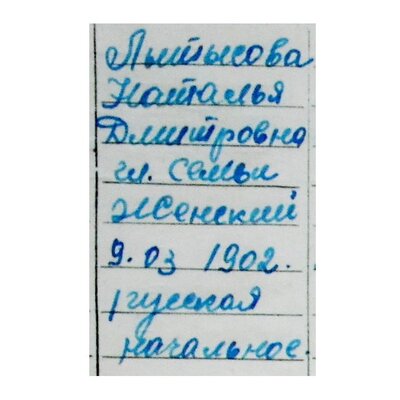 Лытысова
Наталья
Дмитровна
гл. семьи
Женский
9.03 1902.
русская
начальное